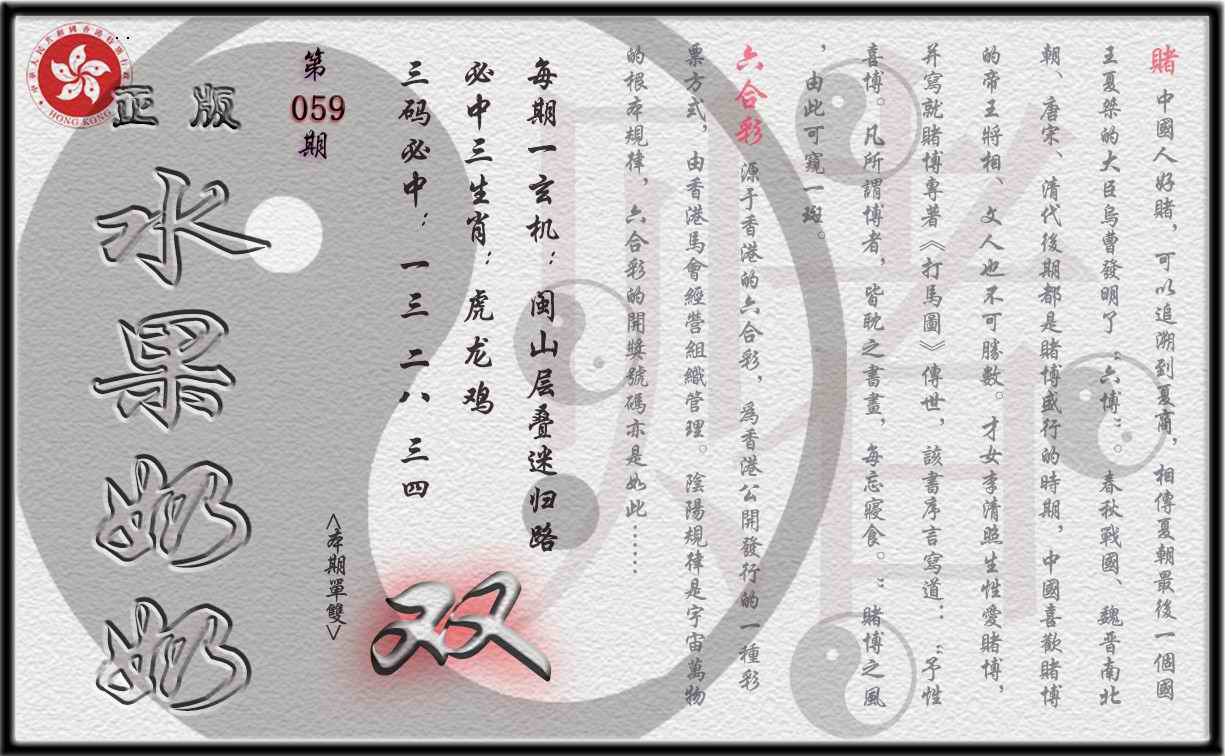 賭 中國人好賭，可以追溯到夏商，相傳夏朝最後一個國
王夏桀的大臣烏曹發明了“六博”。春秋戰國、魏晋南北
朝、唐宋、清代後期都是賭博盛行的時期，中國喜歡賭博
的帝王將相、文人也不可勝數。才女李清照生性愛賭博，
并寫就賭博專著《打馬圖》傳世，該書序言寫道：“予性
喜博。凡所謂博者，皆耽之書畫，每忘寢食。”賭博之風
，由此可窺一斑。
六合彩 源于香港的六合彩，爲香港公開發行的一種彩
票方式，由香港馬會經營組織管理。陰陽規律是宇宙萬物
的根本規律，六合彩的開獎號碼亦是如此……
每期一玄机：闽山层叠迷归路
必中三生肖：虎龙鸡
三码必中：一三 二八 三四
<本期單雙>
双
第
059
期
正版
水果奶奶
中華人民共和國香港特別行政區
HONG KONG